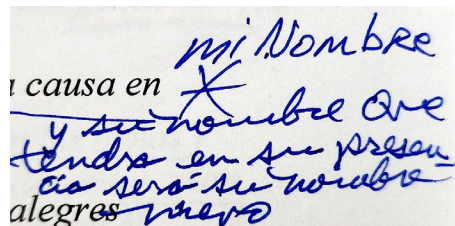 mi Nombre
a causa en X
y su nombre que
tendra en su presen-
cia será su nombre
alegres nuevo